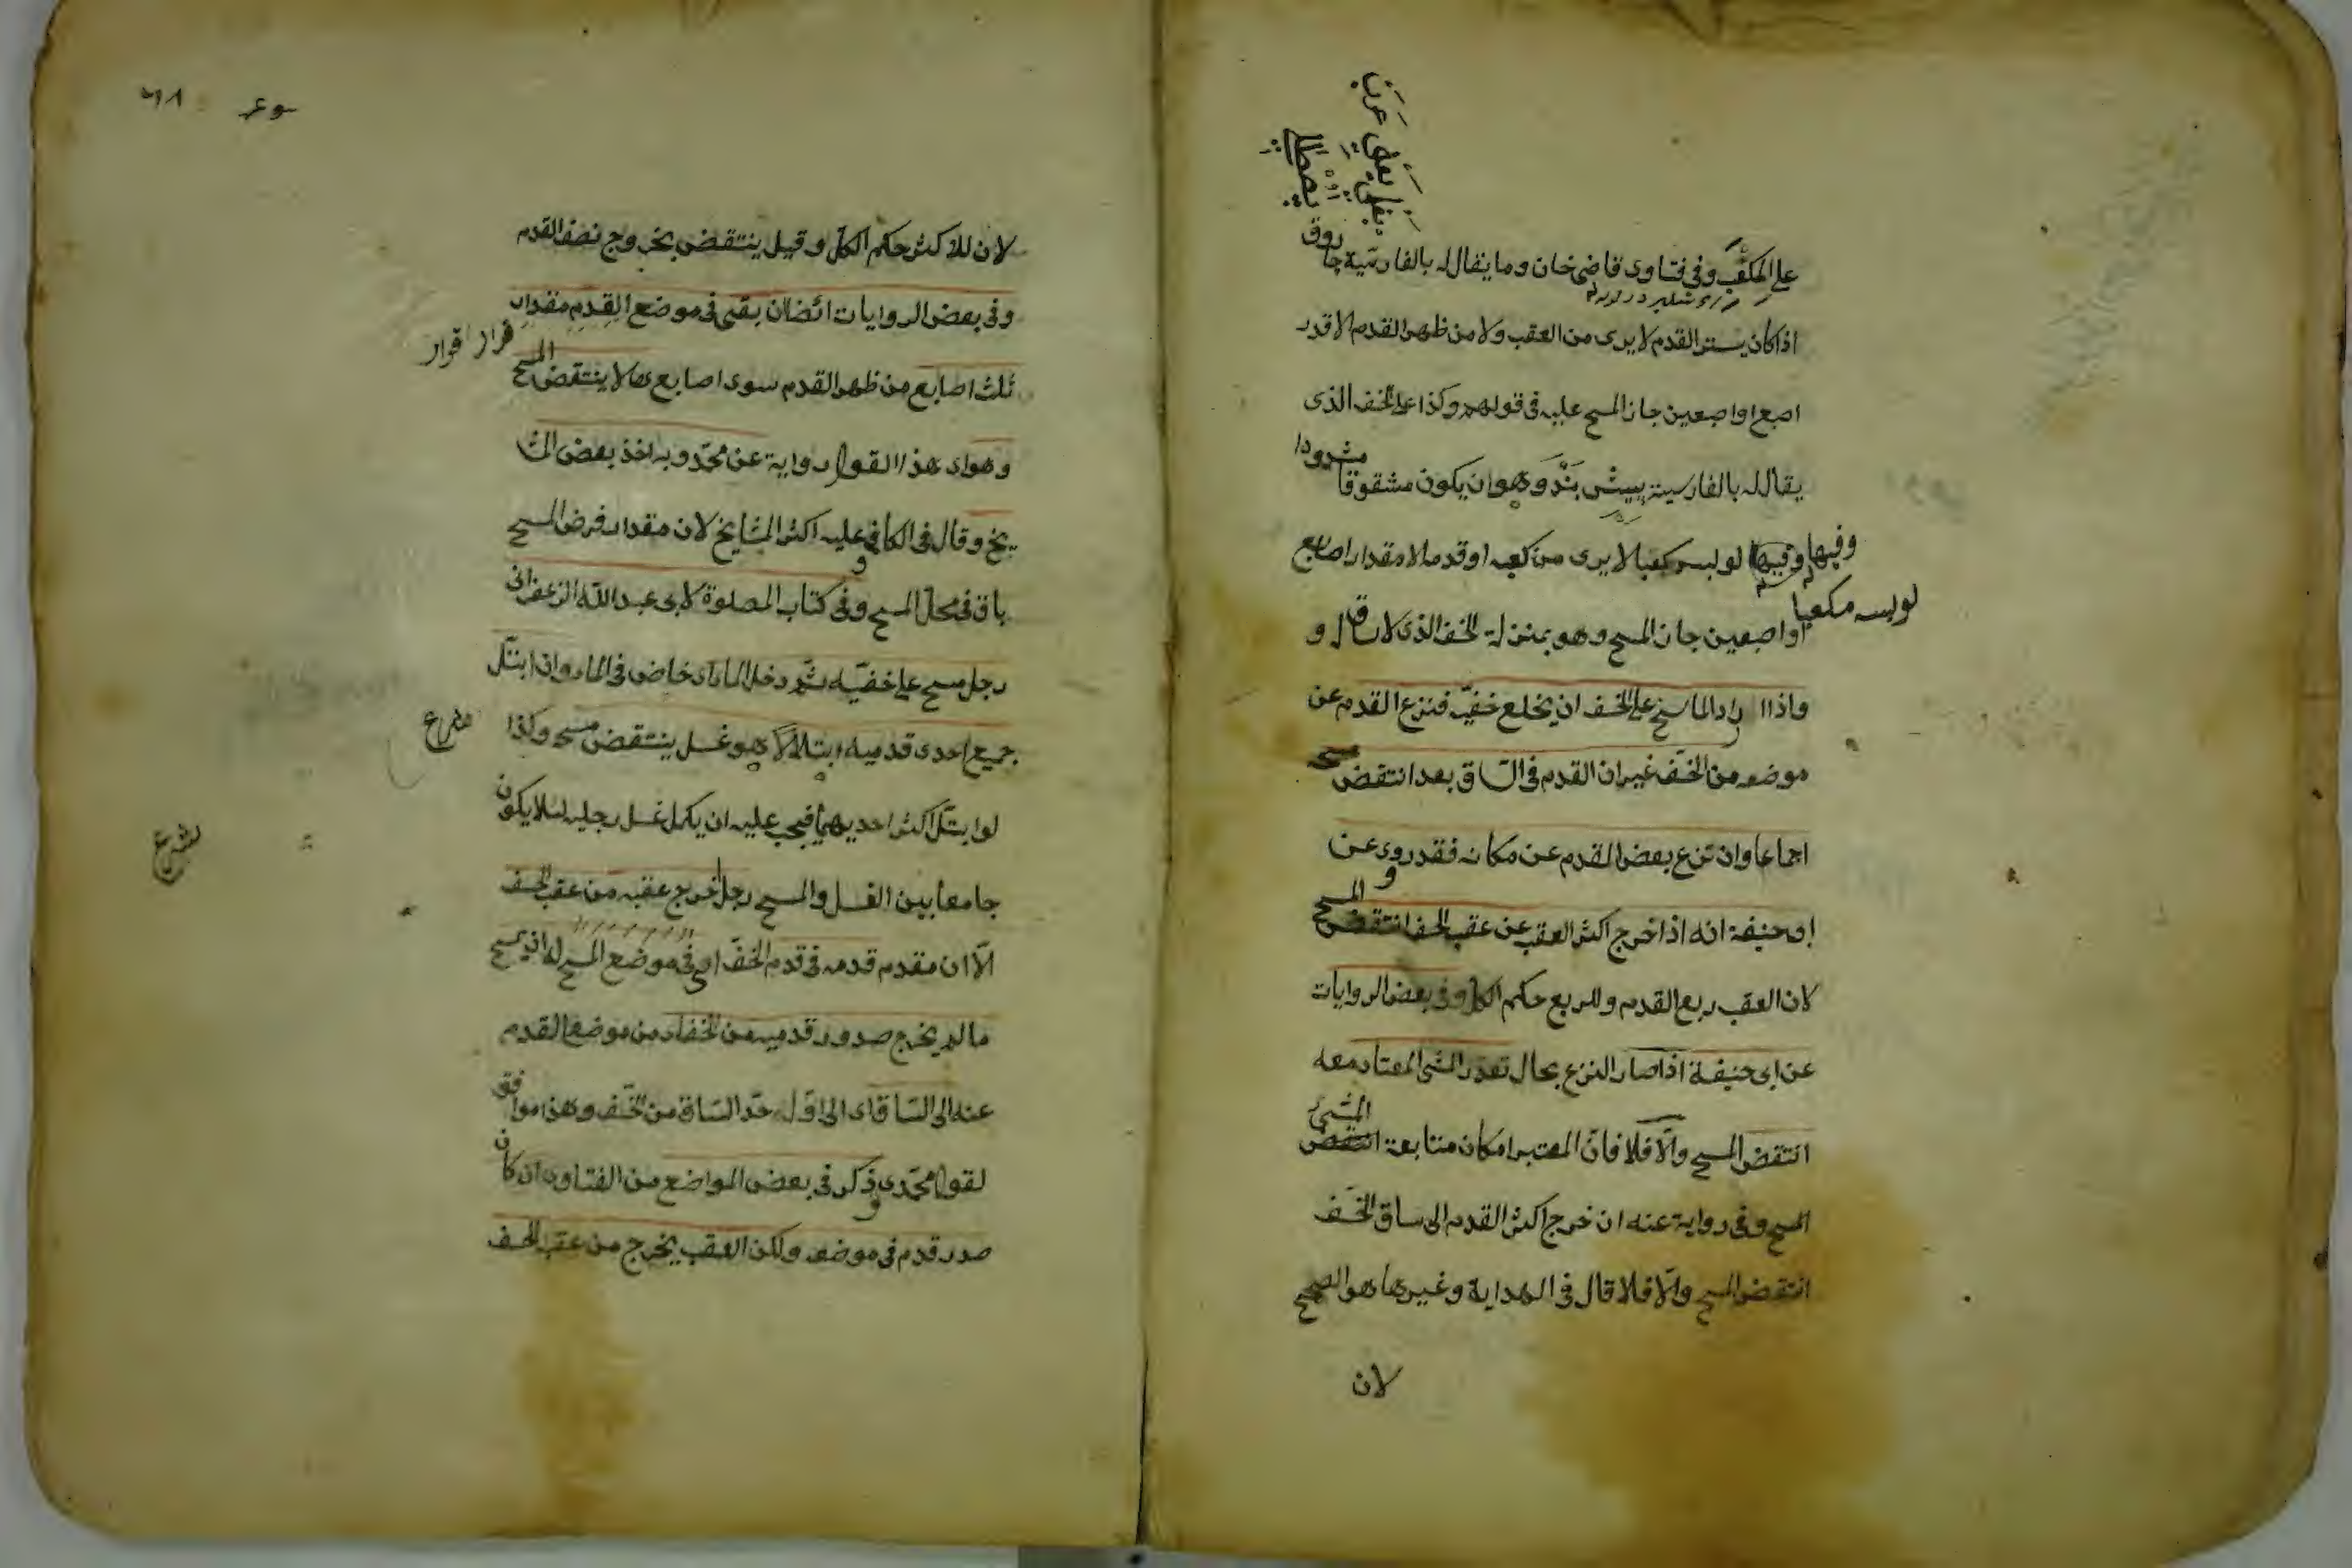 على المكعب وفى فتاوى قاضى خان وما يقال له بالفارسية جاروق
اذا كان يستر القدم لا يرى من العقب ولا من ظهر القدم الا قدر
اصبع او اصبعين جاز المسح عليه فى قولهم وكذا على الخف الذى
يقال له بالفارسية پيش بند وهو ان يكون مشقوقا مشدودا
وفيها وفيها لو لبس مكعبا لا يرى من كعبه او قدمه الا مقدار اصبع
لو لبسه مكعبا
او اصبعين جاز المسح وهو بمنزلة الخف الذى لا ساق له و
واذا اراد الماسح على الخف ان يخلع خفيه فنزع القدم عن
موضعه من الخف غير ان القدم فى الساق بعد انتقض مسحه
اجماعا وان نزع بعض القدم عن مكانه فقد روى عن
ابى حنيفة انه اذا خرج اكثر العقب عن عقب الخف انتقض المسح
لان العقب ربع القدم وللربع حكم الكل وفى بعض الروايات
عن ابى حنيفة اذا صار النزع بحال تعذر المشى المعتاد معه
انتقض المسح والا فلا فان المعتبر امكان متابعة انتقض المشى
المسح وفى رواية عنه ان خرج اكثر القدم الى ساق الخف
انتقض المسح والا فلا قال فى الهداية وغيرها هو الصحيح
لان
لان للاكثر حكم الكل وقيل ينتقض بخروج نصف القدم
وفى بعض الروايات ايضا ان بقى فى موضع القدم مقدار
ثلث اصابع من ظهر القدم سوى اصابعها لا ينتقض المسح
وهو اى هذا القول رواية عن محمد وبه اخذ بعض المشا
يخ وقال فى الكافى وعليه اكثر المشايخ لان مقدار فرض المسح
باق فى محل المسح وفى كتاب الصلوة لابى عبد الله الزعفرانى
رجل مسح على خفيه ثم دخل الماء اى خاض فى الماء وان ابتل
جميع احدى قدميه ابتلالا هو غسل ينتقض مسحه وكذا
لو ابتل اكثر احديهما فيجب عليه ان يكمل غسل رجليه لئلا يكون
جامعا بين الغسل والمسح رجل اخرج عقبه من عقب الخف
الا ان مقدم قدمه فى قدم الخف اى فى موضع المسح له ان يمسح
ما لم يخرج صدور قدميه من الخف اى من موضع القدم
عنه الى الساق اى الى اول حد الساق من الخف وهذا موافق
لقول محمد وذكر فى بعض المواضع من الفتاوى ان كان
صدر قدم فى موضعه ولكن العقب يخرج من عقب الخف